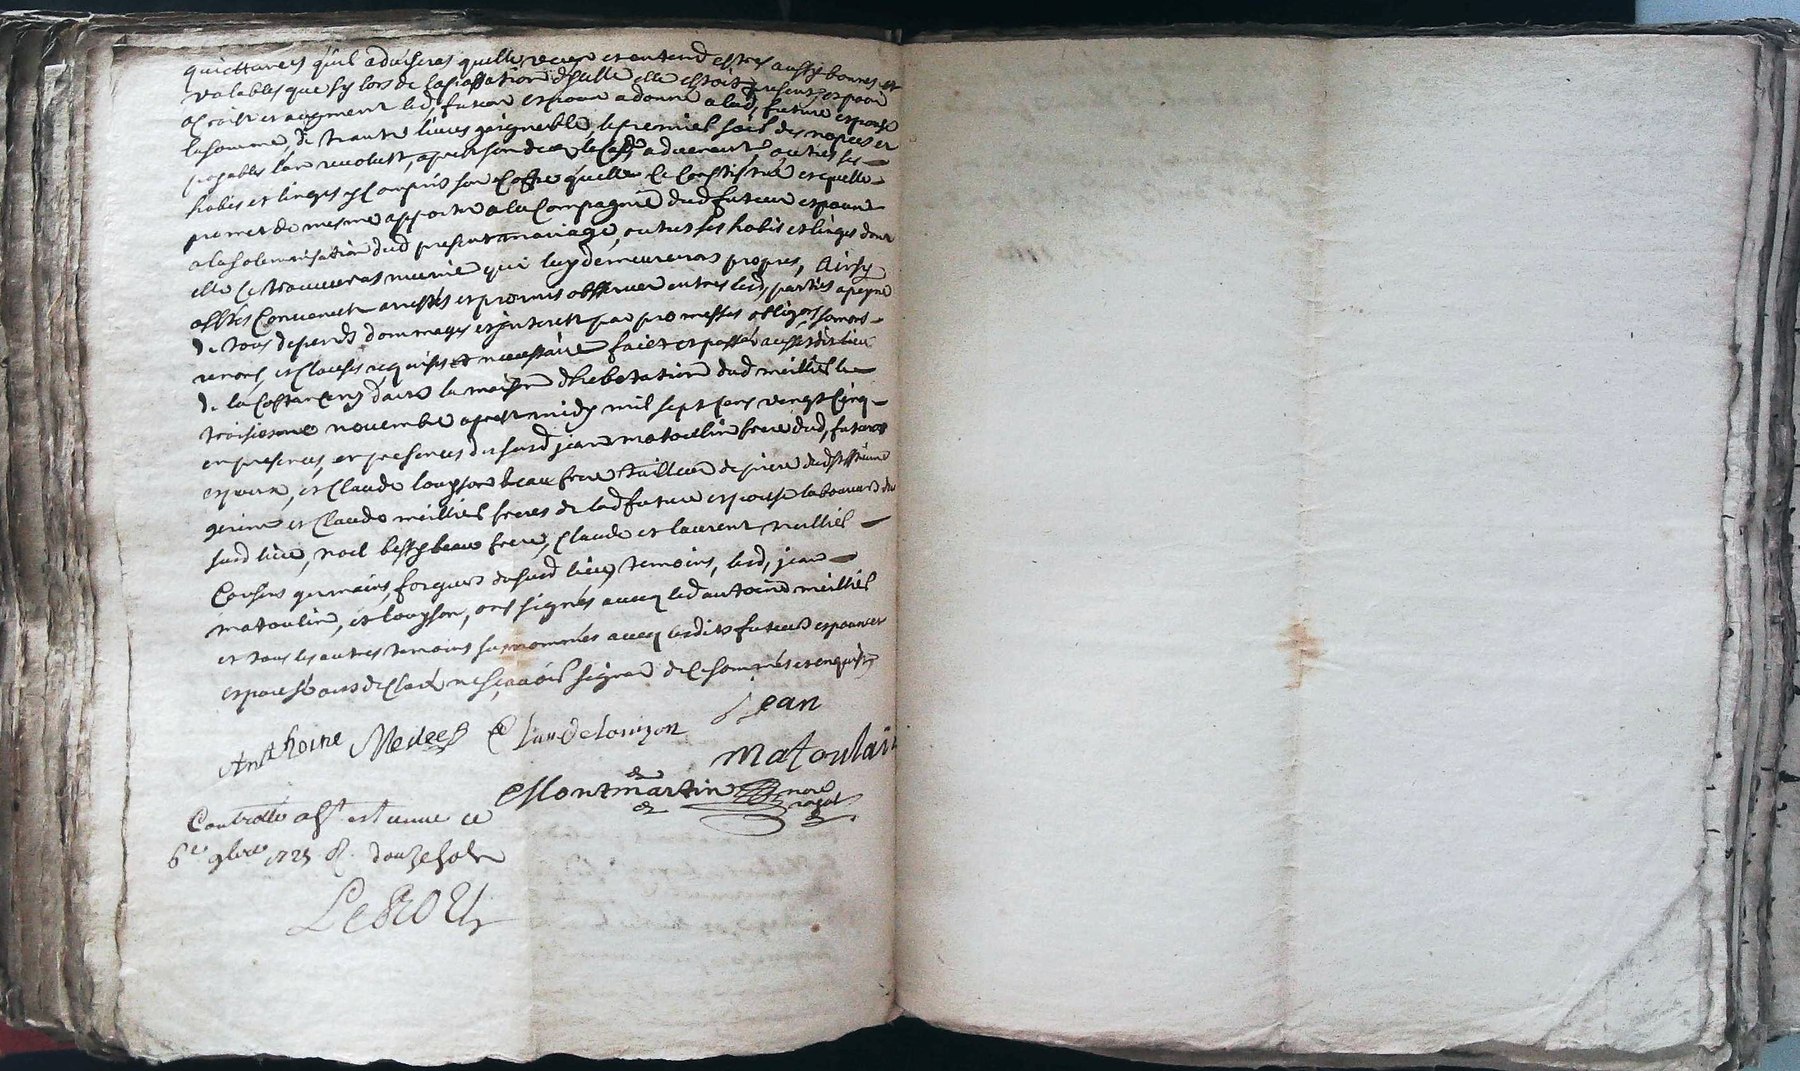 quittances qu'il adviseras qu'elle veux et entend estres aussy bonnes et
valables que sy lors de la passation d'icelle elle estoit presente, et pour
acroist et augment led, futeur espoux a donné a lad, future espouse
la somme, de trante livres gaigneable, le premier soir des nopces et
payables l'an revolust, apres son deces le cas, advenant, outres ses
habis et linges y compris son coffre qu'elle ce constistue et qu'elle
promet de mesme apporter a la compagnie dud futeur espoux
a la solemnisation dud present mariage, outres ses habis et linges dont
elle ce trouveras munie qui luy demeureront propres, Ainsy
a estés convenut arrestés et promis observer entres lesd, parties a peyne
de tous depends dommages et interest par promesses obligãons soumons
renons, et clauses requises et necessaire faict et passés aususdit lieu
de la Costan dans la maison d'hebetation dud meillier le
troisiesme novembre apres midy mil sept cens vengt cinq
en presences, en presences du susd jean matoulin frere dud, futeur
espoux, et Claude louyson beau frere tailleur de piere dud
et Claude meillier freres de lad future espouse laboureurs du
susd lieu, noel bessy beau frere, Claude et laurent meillier
Cousins germains, forgeurs du susd lieu, temoins, lesd, jean
matoulin, et louyson, ont signés avecq led antoine meillier
et tous les autres temoins surnommés avecq lesdits futeurs espoux et
espouse ont declaré ne sçavoir signer de ce sommés et enquis
Anthoine Melier Claude loiuzon Jean
matoulain
Montmartin nore
royal
Controllé a st estienne ce
6e 9bre 1725 R. douze sols
Leroy